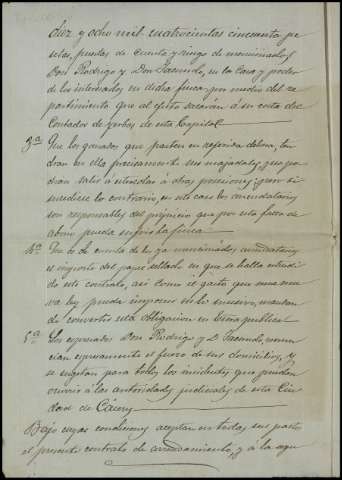 diez y ocho mil cuatrocientas cincuenta pe
setas, puestas de cuenta y riesgo de mencionados
Don Rodrigo y Don Facundo, en la casa y poder
de los interesados en dicha finca, por medio del re
partimiento que al efecto sacarán á su costa del
Contador de yerbas de esta Capital.
3ª Que los ganados que pasten en referida dehesa, ten
dran en ella precisamente sus majadales, que po
dran salir á otras posesiones; y si
sucediere lo contrario, en este caso los arrendatarios
son responsables del perjuicio que por esta falta de
abono pueda sufrir la finca.
4ª Que es de cuenta de los ya mencionados arrendatarios
el importe del papel sellado en que se halla extendi
do este contrato, así como el gasto que una nue
va ley pueda imponer en lo sucesivo, mandan
do convertir esta obligacion en Escritura publica.
5ª Los expresados Don Rodrigo y D. Facundo, renun
cian expresamente el fuero de sus domicilios, y
se sujetan para todos los incidentes que puedan
ocurrir á las autoridades judiciales de esta Ciu
dad de Cáceres.
Bajo cuyas condiciones aceptan en todas sus partes
el presente contrato de arrendamiento, y á la segu